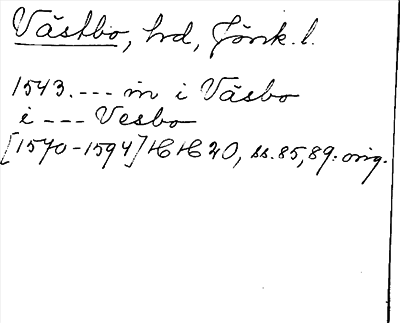 Västbo, hrd, Jönk. l.
1543. --- in i Väsbo
i --- Vesbo
[1570-1594] HH 20, ss. 85, 89. orig.